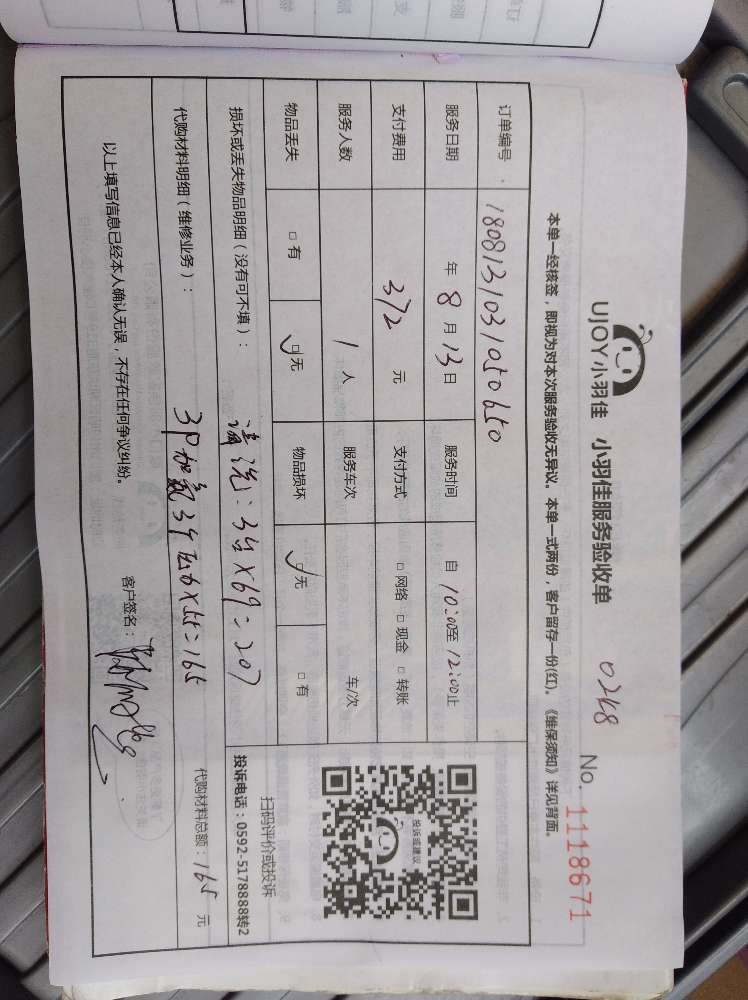 UJOY小羽佳 小羽佳服务验收单 0248 No. 1118671
本单一经核签，即视为对本次服务验收无异议。本单一式两份，客户留存一份(红)。《维保须知》详见背面。
订单编号： 1808131031050650
服务日期 年 8 月 13 日 服务时间 自 10:00至 12:00止
支付费用 372 元 支付方式 □ 网络 □ 现金 □ 转账
服务人数 1 人 服务车次 车/次
物品丢失 □ 有 □ 无 物品损坏 □ 无 □ 有
投诉或建议
扫码评价或投诉
投诉电话：0592-5178888转2
损坏或丢失物品明细（没有可不填）： 清洗：3台×69=207
代购材料明细（维修业务）： 3P加氟3个压力×55=165 代购材料总额：165 元
以上填写信息已经本人确认无误，不存在任何争议纠纷。 客户签名：